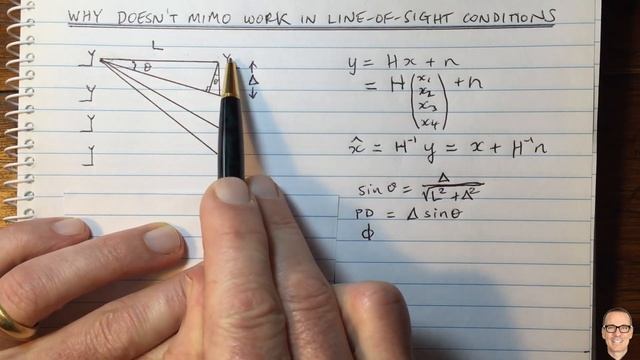 WHY DOESN'T MIMO WORK IN LINE-OF-SIGHT CONDITIONS
L
θ
θ
Δ
y = Hx + n
= H (x₁ x₂ x₃ x₄) + n
x̂ = H⁻¹ y = x + H⁻¹n
sin θ = Δ / √(L² + Δ²)
PD = Δ sin θ
ϕ